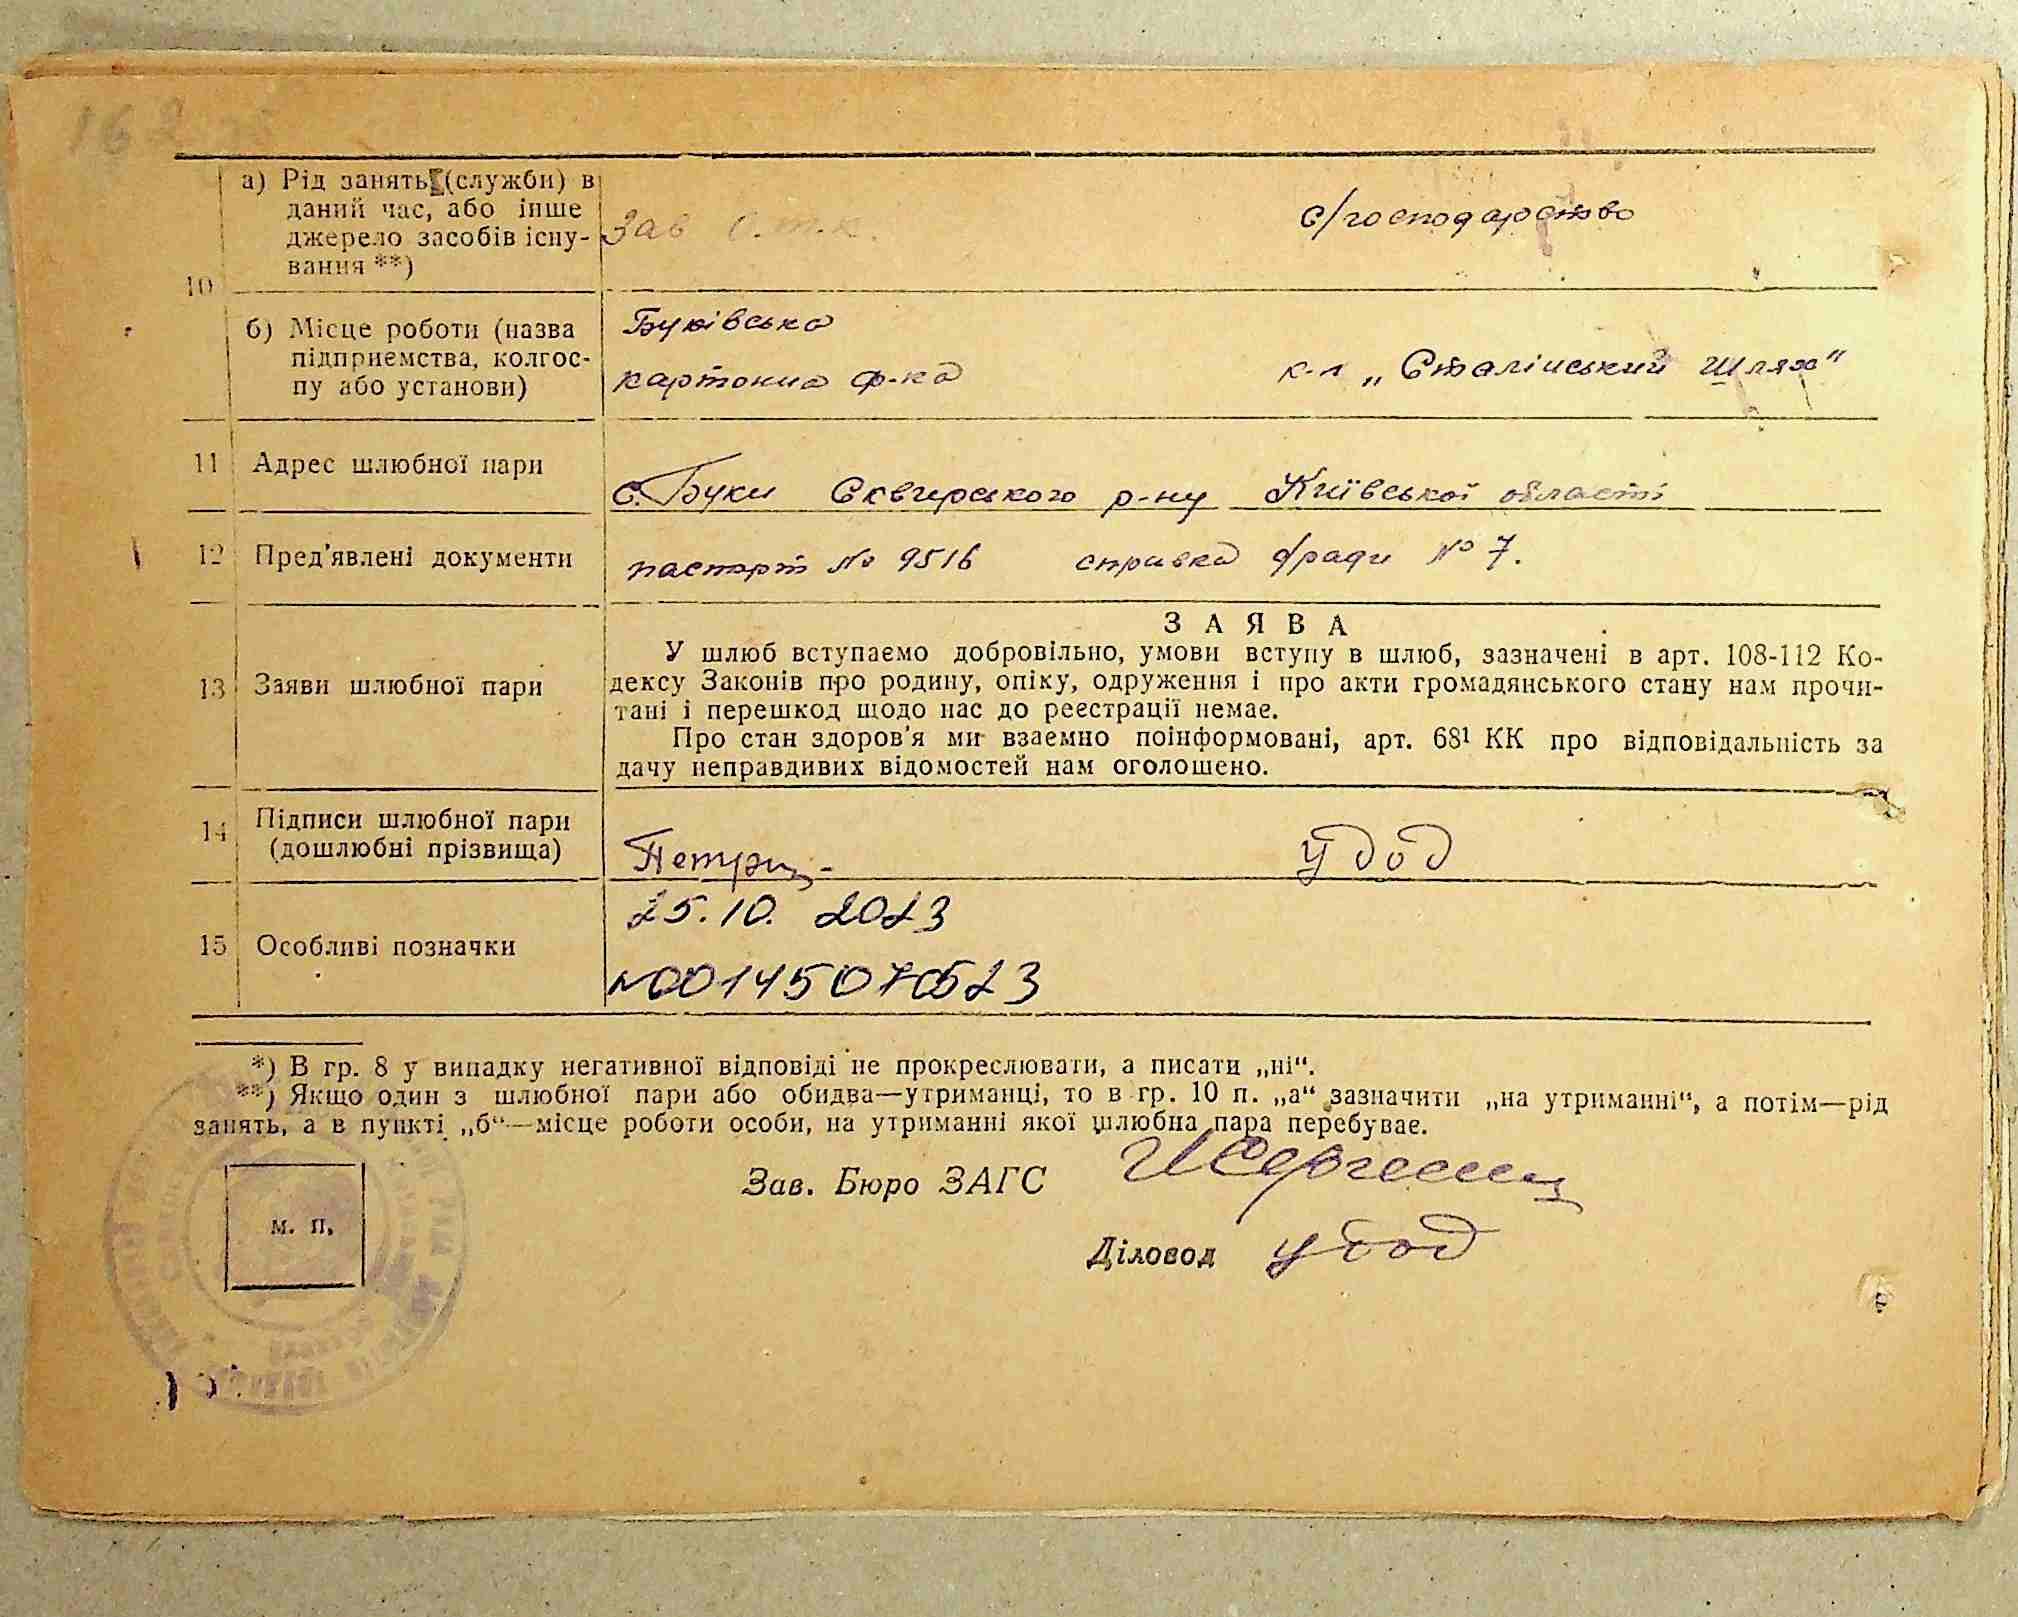 162
а) Рід занять (служби) в
даний час, або інше
джерело засобів існу-
вання **)
Зав С.т.к.
с/господарство
10
б) Місце роботи (назва
підприємства, колгос-
пу або установи)
Буківська
картонна ф-ка
к-п „Сталінський Шлях"
11 Адрес шлюбної пари
с. Буки Сквирського р-ну Київської області
12 Пред'явлені документи
паспорт № 9516 справка с/ради № 7.
13 Заяви шлюбної пари
ЗАЯВА
У шлюб вступаємо добровільно, умови вступу в шлюб, зазначені в арт. 108-112 Ко-
дексу Законів про родину, опіку, одруження і про акти громадянського стану нам прочи-
тані і перешкод щодо нас до реєстрації немає.
Про стан здоров'я ми взаємно поінформовані, арт. 68¹ КК про відповідальність за
дачу неправдивих відомостей нам оголошено.
14 Підписи шлюбної пари
(дошлюбні прізвища)
Удод
25.10. 2023
15 Особливі позначки
№00145070523
*) В гр. 8 у випадку негативної відповіді не прокреслювати, а писати „ні".
**) Якщо один з шлюбної пари або обидва—утриманці, то в гр. 10 п. „а" зазначити „на утриманні", а потім—рід
занять, а в пункті „б"—місце роботи особи, на утриманні якої шлюбна пара перебуває.
Зав. Бюро ЗАГС
м. п.
Діловод Удод